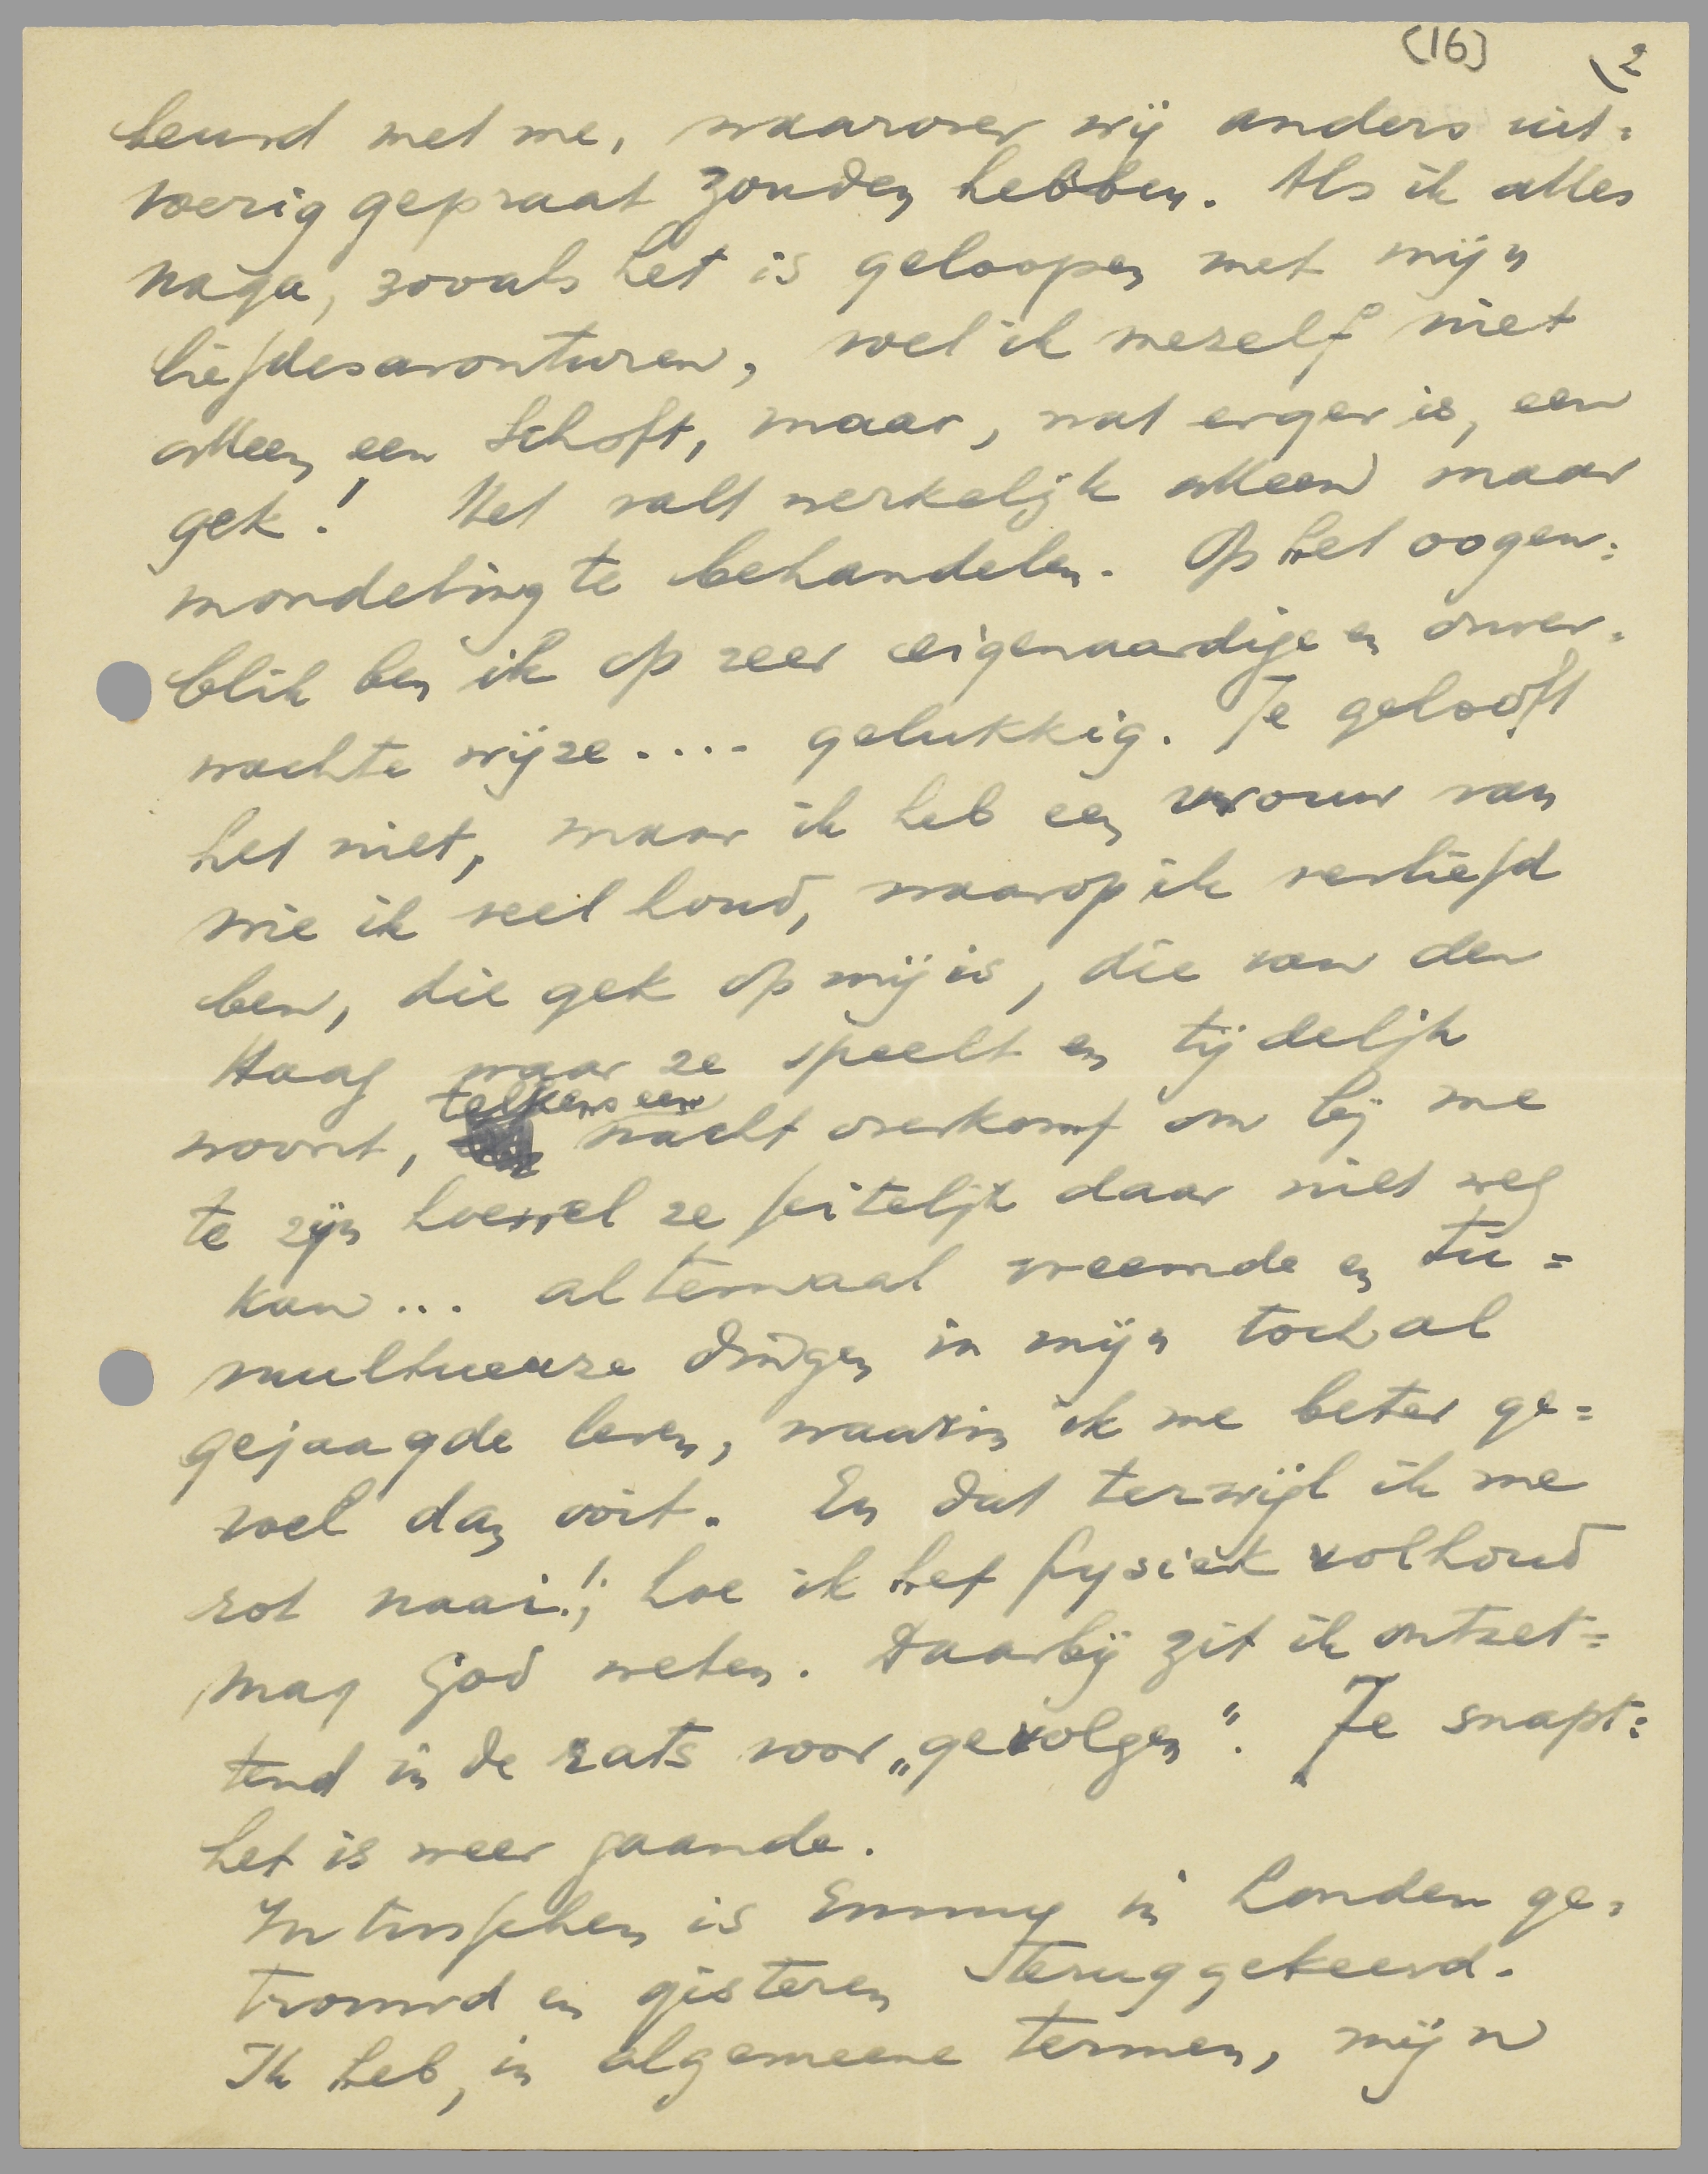 (16) 2
beurd met me, waarover wij anders uit=
voerig gepraat zouden hebben. Als ik alles
naga, zooals het is geloopen met mijn
liefdesavonturen, voel ik mezelf niet
alleen een schoft, maar, wat erger is, een
gek! Het valt werkelijk alleen maar
mondeling te behandelen. Op het oogen=
blik ben ik op zeer eigenaardige en onver=
wachte wijze.... gelukkig. Je gelooft
het niet, maar ik heb een vrouw van
wie ik veel houd, waarop ik verliefd
ben, die gek op mij is, die van den
Haag waar ze speelt en tijdelijk
woont, telkens een nacht overkomt om bij me
te zijn hoewel ze feitelijk daar niet weg
kan... altemaal vreemde en tu=
multueuze dingen in mijn toch al
gejaagde leven, waarin ik me beter ge=
voel dan ooit. En dat terwijl ik me
rot naai!; hoe ik het fysiek volhoud
mag God weten. Daarbij zit ik ontzet=
tend in de rats voor „gevolgen". Je snapt:
het is weer gaande.
Intusschen is Emmy in Londen ge=
trouwd en gisteren teruggekeerd.
Ik heb, in algemeene termen, mijn